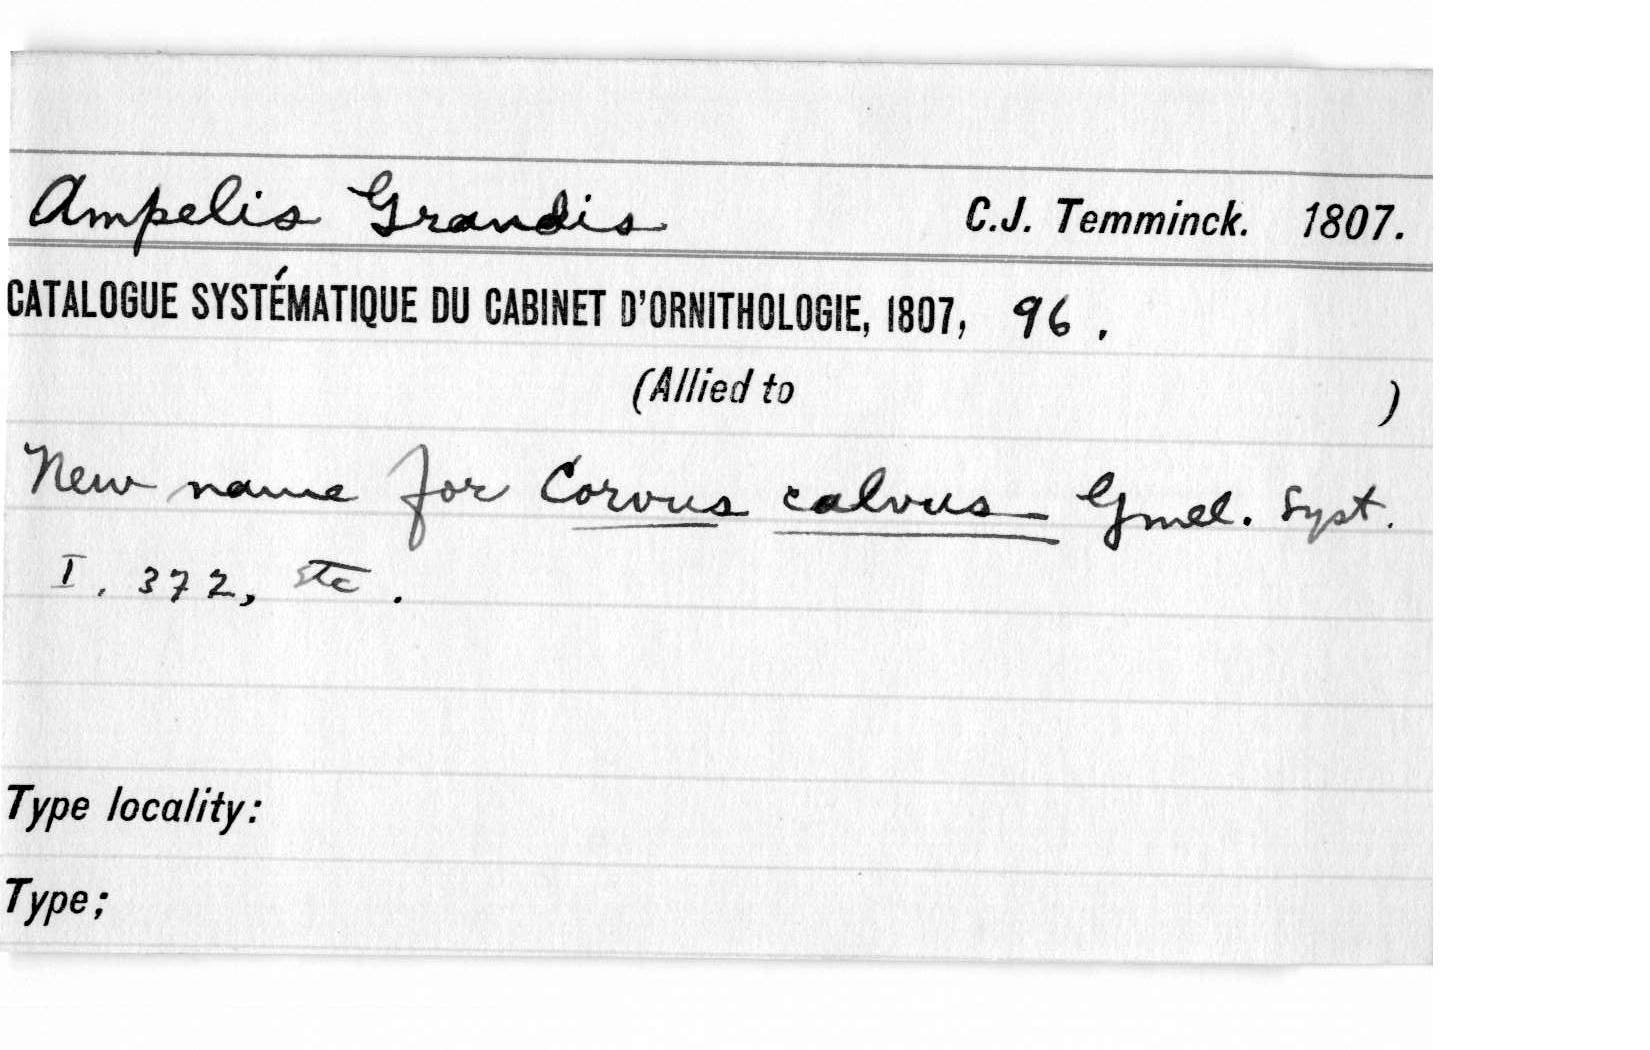 Ampelis Grandis C.J. Temminck. 1807.
CATALOGUE SYSTÉMATIQUE DU CABINET D'ORNITHOLOGIE, 1807, 96.
(Allied to )
New name for Corvus calvus Gmel. Syst.
I. 372, etc.
Type locality:
Type;